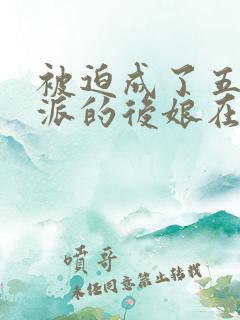 被迫成了五
派的後娘在
噴哥
未经同意禁止转载